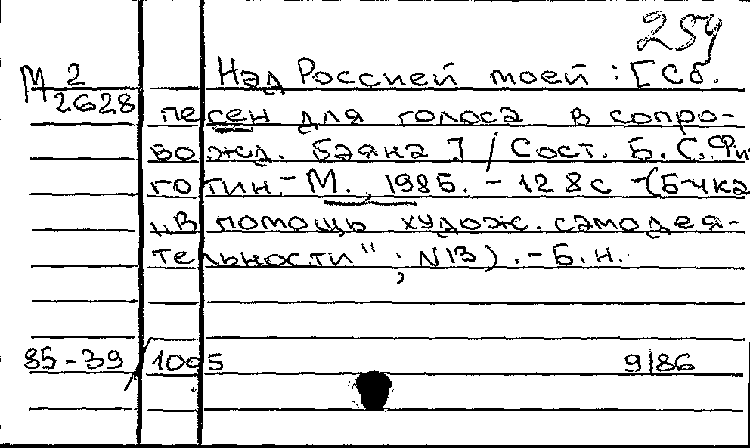 254
М 2 Над России моей : [Сб.
2628 песен для голоса в сопро-
вожд. баяна] / Сост. Б. С. Фи-
готин. - М., 1985. - 128 с - (Б-чка
"В помощь худож. самодея-
тельности" ; N13). - Б. н.
85-39/1005 9/86